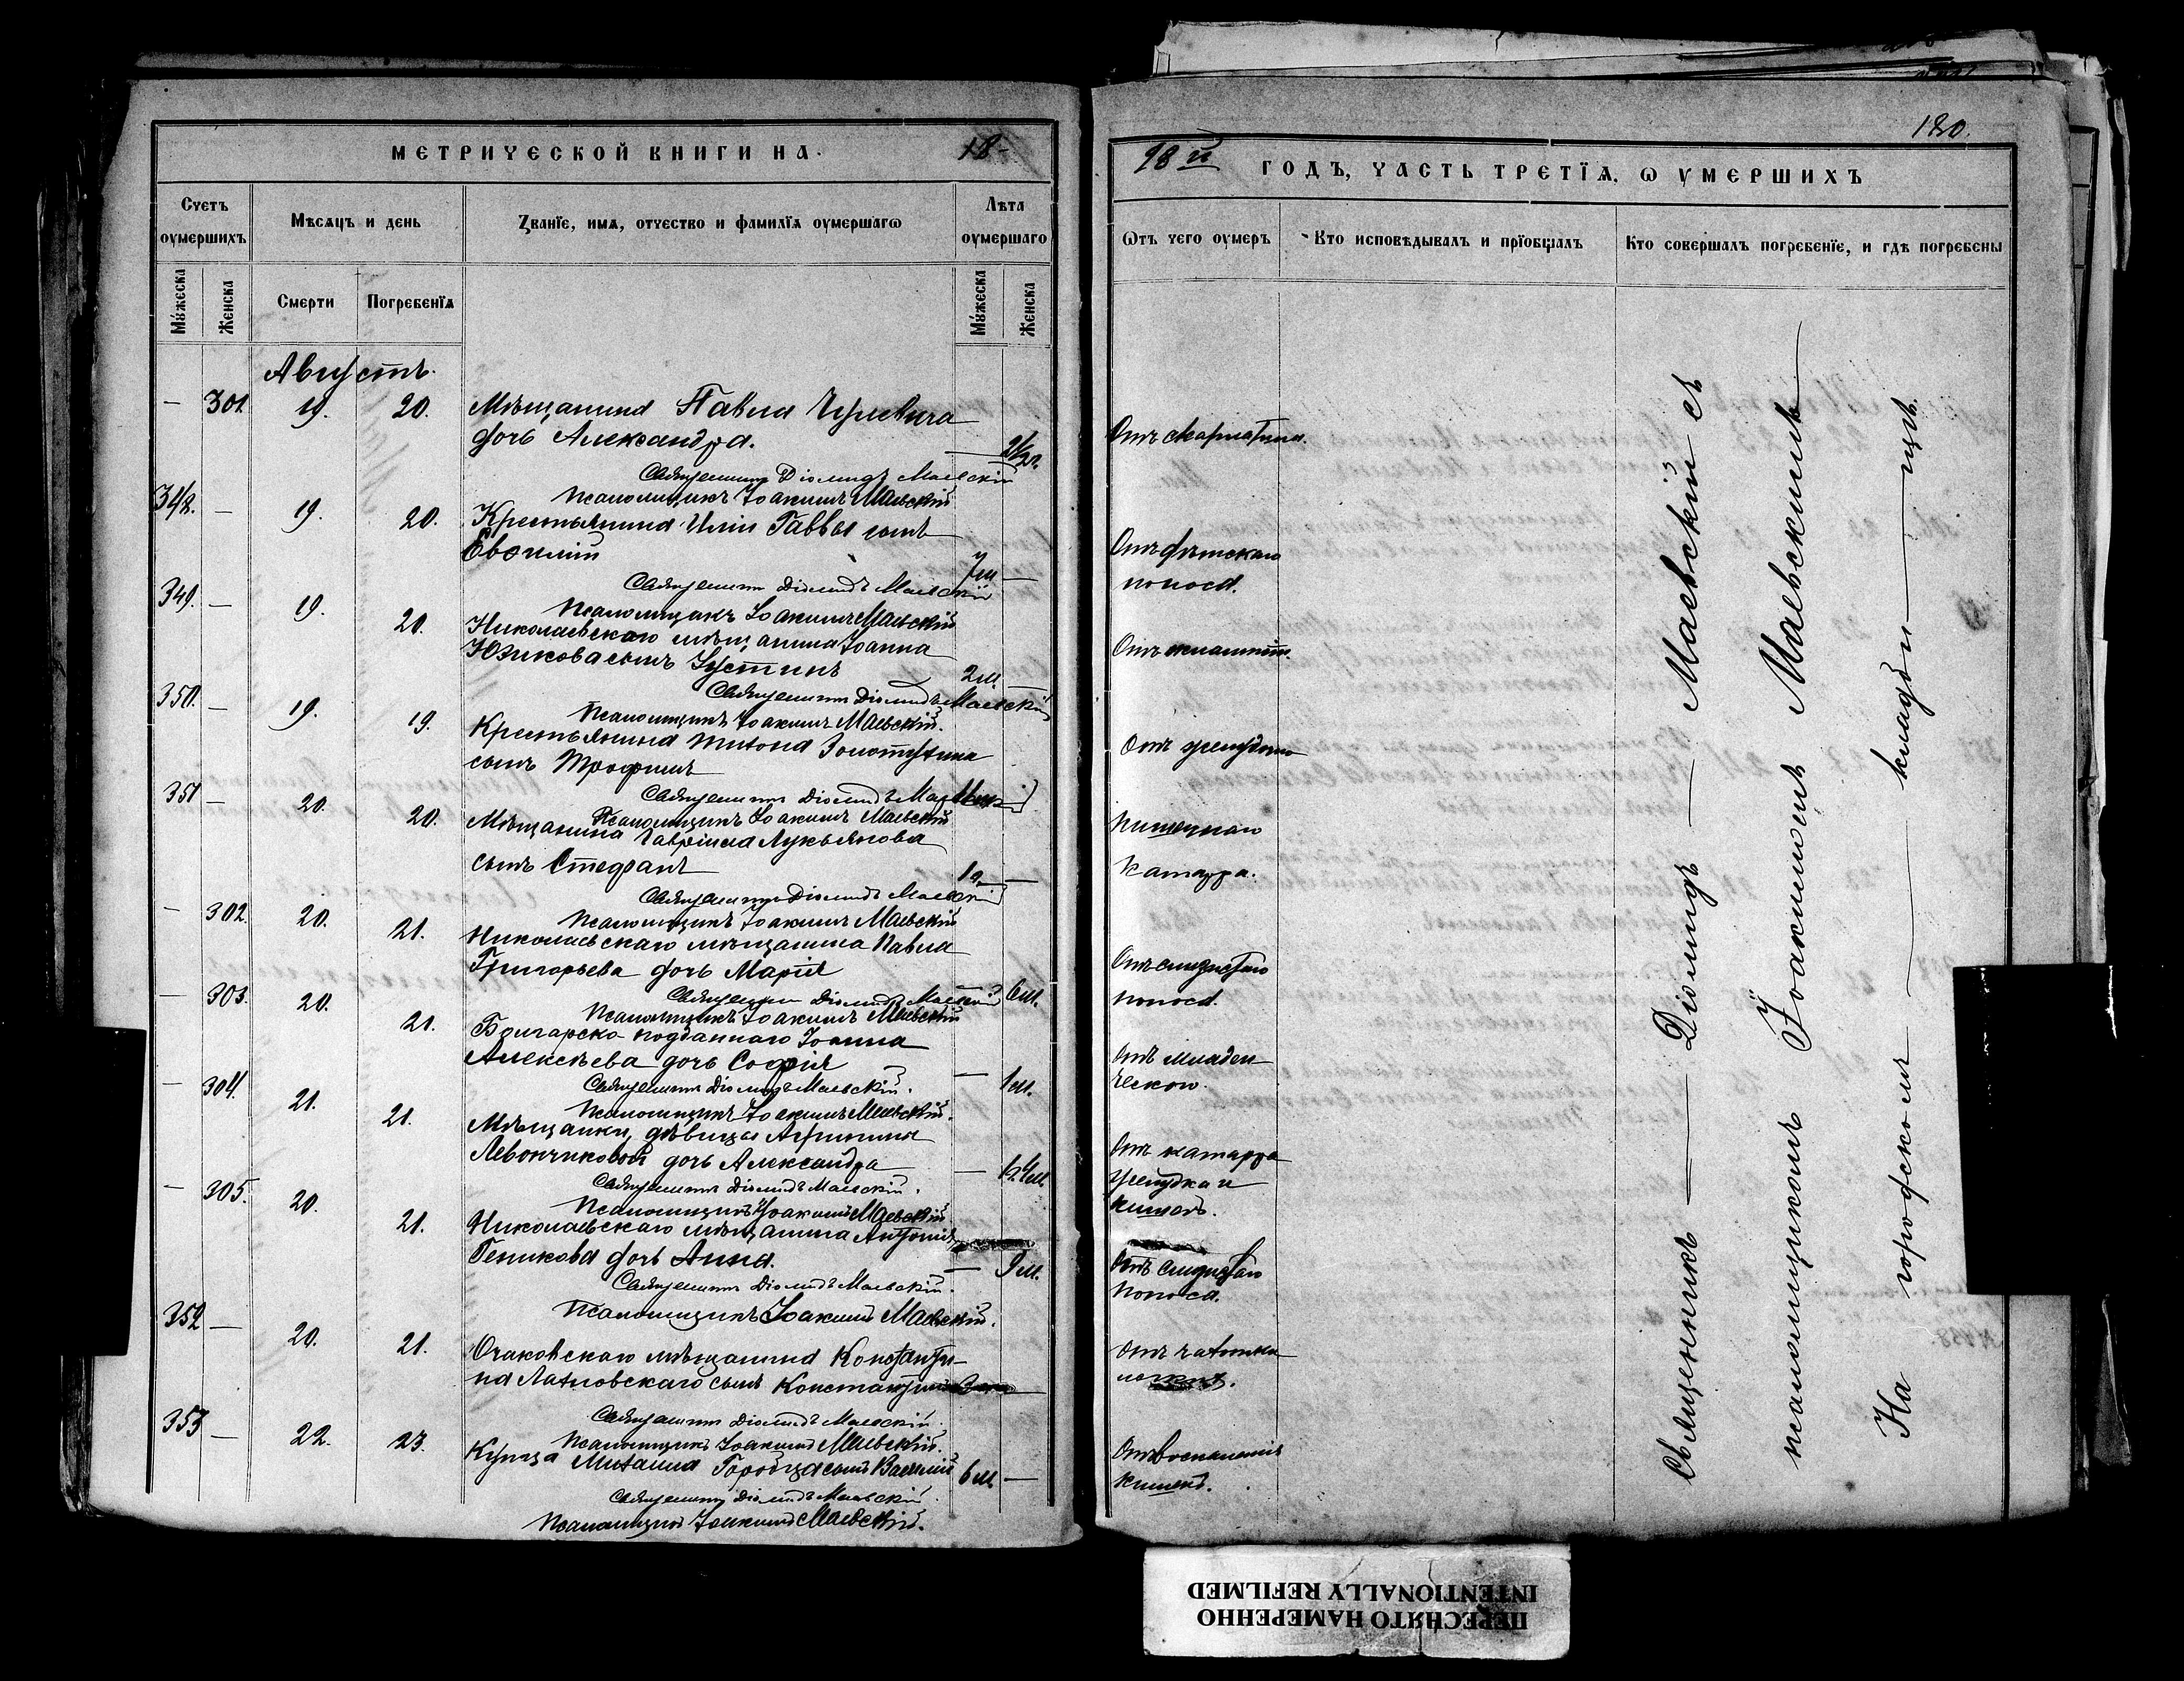 180.
МЕТРИЧЕСКОЙ КНИГИ НА 18-
98й ГОДЪ, ЧАСТЬ ТРЕТЇѦ, Ѡ ОУМЕРШИХЪ
Счетъ оумершихъ
Мѣсѧцъ и день
Званїе, имѧ, отчество и фамилїѧ оумершагѡ
Лѣта оумершаго
Ѿтъ чего оумеръ
Кто исповѣдывалъ и прїобщалъ
Кто совершалъ погребенїе, и гдѣ погребены
Мужеска
Женска
Смерти
Погребенїѧ
Мужеска
Женска
Августъ.
— 301. 19. 20. Мѣщанина Павла
дочь Александра.
Отъ скарлатины.
Священникъ Діомидъ Маевскій
Псаломщикъ Іоакимъ Маевскій
348. — 19. 20. Крестьянина Иліи Саввы сынъ
Евфимій 7м —
Отъ дѣтскаго
поноса.
Священникъ Діомидъ Маевскій
Псаломщикъ Іоакимъ Маевскій
349. — 19. 20. Николаевскаго мѣщанина Іоанна
Юзикова сынъ Іустинъ 2м —
Священникъ Діомидъ Маевскій
Псаломщикъ Іоакимъ Маевскій.
350. — 19. 19. Крестьянина Титона Золотухина
сынъ Трофимъ
Священникъ Діомидъ Маевскій
Псаломщикъ Іоакимъ Маевскій
351 — 20. 20. Мѣщанина Гавріила Лукьянова
сынъ Стефанъ 1г. —
кишечнаго
катарра.
Священникъ Діомидъ Маевскій
Псаломщикъ Іоакимъ Маевскій
— 302. 20. 21. Николаевскаго мѣщанина Павла
Григорьева дочь Марія 6м.
Отъ слизистаго
поноса.
Священникъ Діомидъ Маевскій
Псаломщикъ Іоакимъ Маевскій
— 303. 20. 21. Болгарско подданнаго Іоанна
Алексѣева дочь Софія — 1м.
Отъ младен
ческой.
Священникъ Діомидъ Маевскій.
Псаломщикъ Іоакимъ Маевскій.
— 304. 21. 21. Мѣщанки, дѣвицы Агрипины
Левончиковой дочь Александра —
Отъ катарра
желудка и
кишекъ.
Священникъ Діомидъ Маевскій.
Псаломщикъ Іоакимъ Маевскій
— 305. 20. 21. Николаевскаго мѣщанина Антонія
Геникова дочь Анна. — 9м.
Отъ слизистаго
поноса.
Священникъ Діомидъ Маевскій.
Псаломщикъ Іоакимъ Маевскій.
352 — 20. 21. Очаковскаго мѣщанина Константи-
на Латловскаго сынъ Константинъ
Отъ чахотки
Священникъ Діомидъ Маевскій.
Псаломщикъ Іоакимъ Маевскій.
353 — 22. 23. Купца Михаила Городца сынъ Василій 6м. —
Отъ воспаленія
кишекъ.
Священникъ Діомидъ Маевскій.
Псаломщикъ Іоакимъ Маевскій.
Священникъ — Діомидъ — Маевскій съ
псаломщикомъ Іоакимомъ Маевскимъ —
На городскомъ — кладби — щѣ.
ПЕРЕСНЯТО НАМЕРЕННО
INTENTIONALLY REFILMED